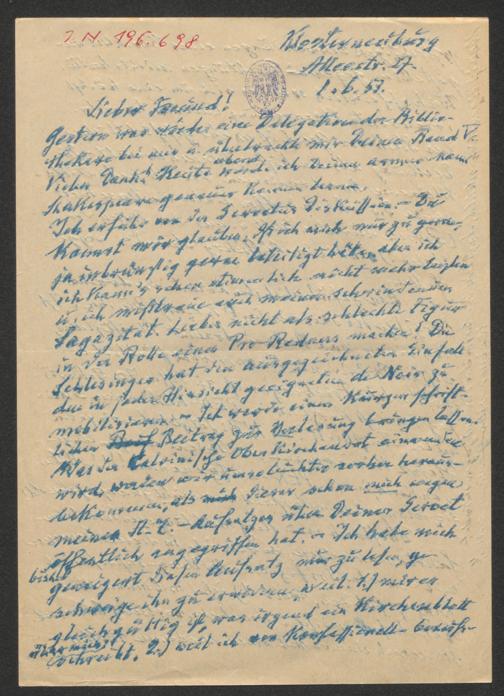 I N 196.698
Klosterneuburg
Alleestr. 27
1.6.53.
Lieber Freund!
Gestern war eine Delegation der Biblio-
thekare bei mir u. überbrachte mir Deine
Vielen Dank! Heute abend werde ich Deinen armen Mann
Shakespeare genauer kennen lernen.
Ich erfuhr von der Servetus Diskussion. – Du
kannst mir glauben, daß ich mich nur zu gerne,
ja inbrünstig gerne beteiligt hätte, aber ich
ich kann's schon stimmlich nicht mehr leisten
u. ich mißtraue auch meiner schwindenden
Sagazität. Lieber nicht als schlechte Figur
in der Rolle eines Pro-Redners machen! Du
Schlesinger hat den ausgezeichneten Einfall
den in jeder Hinsicht geeigneten de Noir zu
mobilisieren – Ich werde einen kurzen schrift-
lichen Beitrag zur Vorlesung bringen lassen.
Was der Calvinische Oberkirchenrat einwenden
wird, werden wir umso leichter vorher heraus-
bekommen, als dieser schon mich wegen
meines A.-Z.-Aufsatzes über Deinen Servet
öffentlich angegriffen hat. – Ich habe mich
bisher
geweigert diesen Aufsatz nur zu lesen, ge-
schweige ihn zu erwidern, weil 1.) mir es
gleichgültig ist, was irgend ein Kirchenblatt
über mich
schreibt. 2.) weil ich von Konfessionell-